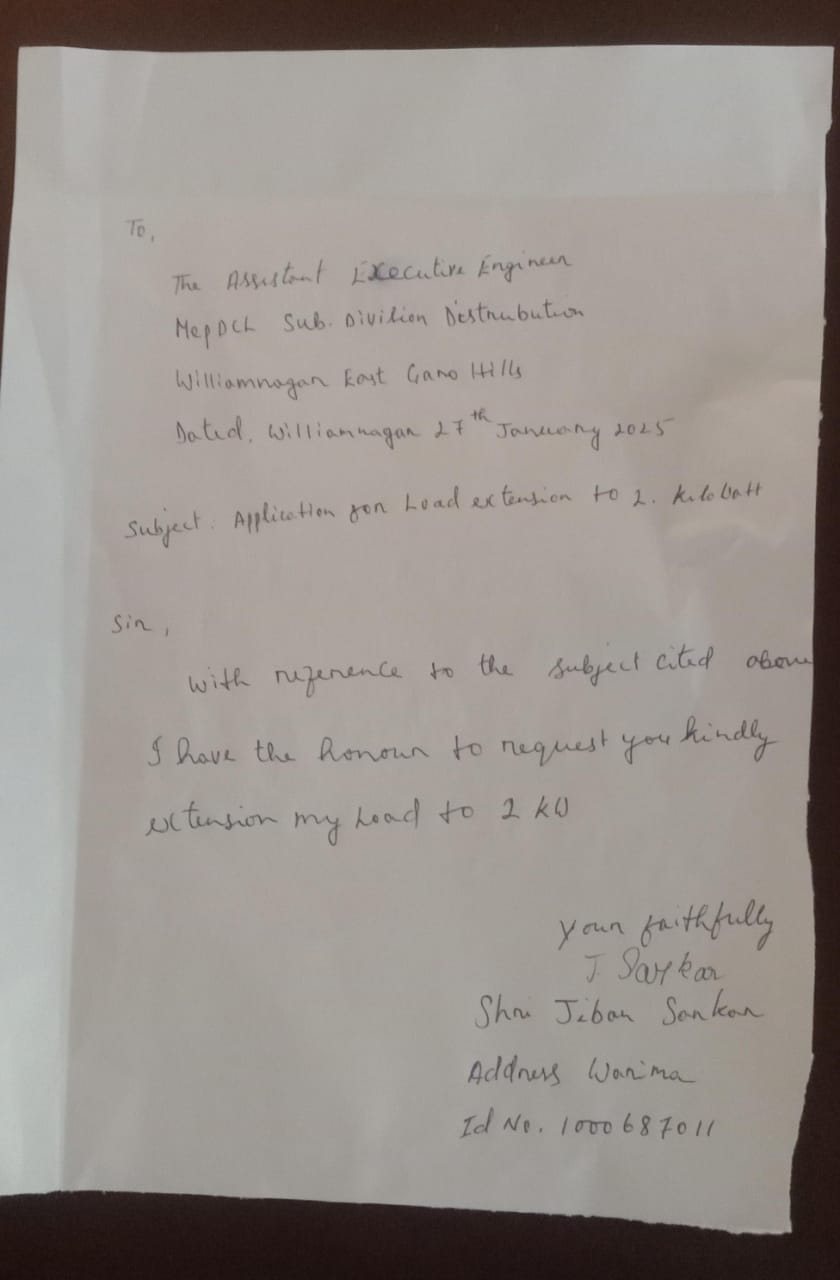 To,
The Assistant Executive Engineer
MepDCL Sub. Division Distrubution
Williamnagar East Garo Hills
Dated, Williamnagar 27th January 2025
Subject: Application for Load extension to 2. KiloWatt
Sir,
With reference to the subject cited above
I have the honour to request you kindly
extension my Load to 2 KW
Your faithfully
J Sarkar
Shri Jiban Sarkar
Address Warima
Id No. 1000687011